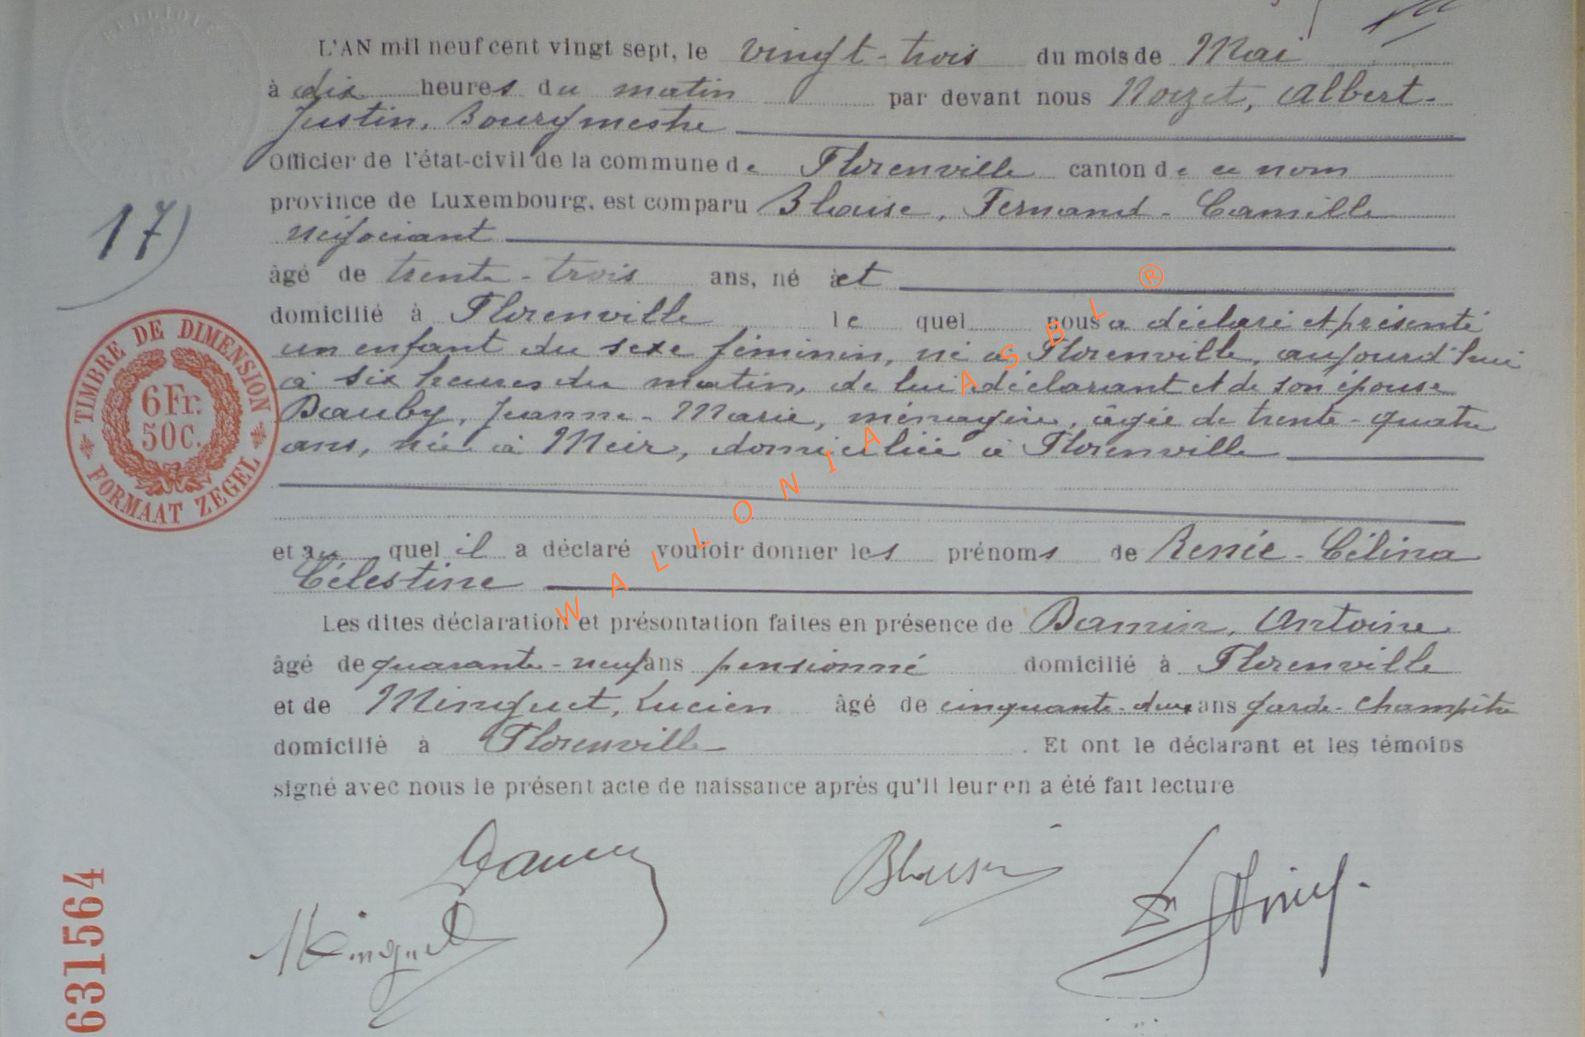 L'AN mil neuf cent vingt sept, le vingt-trois du mois de Mai
à dix heures du matin par devant nous Noizet, Albert-
Justin, Bourgmestre
Officier de l'état-civil de la commune de Florenville canton de ce nom
province de Luxembourg, est comparu Blaise, Fernand-Camille
négociant
âgé de trente-trois ans, né à et
domicilié à Florenville le quel nous a déclaré et présenté
un enfant du sexe féminin, né à Florenville, aujourd'hui
à six heures du matin, de lui déclarant et de son épouse
Dauby, Jeanne-Marie, ménagère, âgée de trente-quatre
ans, née à Meir, domiciliée à Florenville
et au quel il a déclaré vouloir donner les prénoms de Renée-Célina
Célestine
Les dites déclaration et présontation faites en présence de Damin, Antoine
âgé de quarante-neuf ans pensionné domicilié à Florenville
et de Minguet, Lucien âgé de cinquante-deux ans garde-champêtre
domicilié à Florenville. Et ont le déclarant et les témoins
signé avec nous le présent acte de naissance après qu'il leur en a été fait lecture
Blaise
Minguet
17)
TIMBRE DE DIMENSION
6 Fr.
50 C.
FORMAAT ZEGEL
631564
WALLONIA ASBL ®